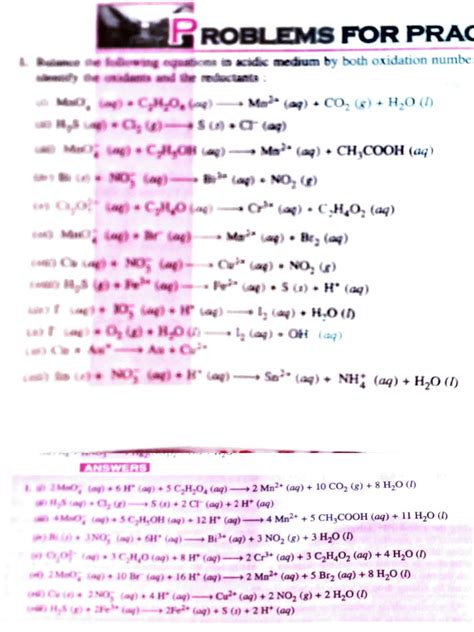 PROBLEMS FOR PRAC
1. Balance the following equations in acidic medium by both oxidation numbe
identify the oxidants and the reductants :
(i) MnO₄⁻ (aq) + C₂H₂O₄ (aq) ⟶ Mn²⁺ (aq) + CO₂ (g) + H₂O (l)
(ii) H₂S (aq) + Cl₂ (g) ⟶ S (s) + Cl⁻ (aq)
(iii) MnO₄⁻ (aq) + C₂H₅OH (aq) ⟶ Mn²⁺ (aq) + CH₃COOH (aq)
(iv) Bi (s) + NO₃⁻ (aq) ⟶ Bi³⁺ (aq) + NO₂ (g)
(v) Cr₂O₇²⁻ (aq) + C₂H₄O (aq) ⟶ Cr³⁺ (aq) + C₂H₄O₂ (aq)
(vi) MnO₄⁻ (aq) + Br⁻ (aq) ⟶ Mn²⁺ (aq) + Br₂ (aq)
(vii) Cu (s) + NO₃⁻ (aq) ⟶ Cu²⁺ (aq) + NO₂ (g)
(viii) H₂S (g) + Fe³⁺ (aq) ⟶ Fe²⁺ (aq) + S (s) + H⁺ (aq)
(ix) I⁻ (aq) + IO₃⁻ (aq) + H⁺ (aq) ⟶ I₂ (aq) + H₂O (l)
(x) I⁻ (aq) + O₂ (g) + H₂O (l) ⟶ I₂ (aq) + OH (aq)
(xi) Cu + Au⁺ ⟶ Au + Cu²⁺
(xii) Sn (s) + NO₃⁻ (aq) + H⁺ (aq) ⟶ Sn²⁺ (aq) + NH₄⁺ (aq) + H₂O (l)
ANSWERS
1. (i) 2 MnO₄⁻ (aq) + 6 H⁺ (aq) + 5 C₂H₂O₄ (aq) ⟶ 2 Mn²⁺ (aq) + 10 CO₂ (g) + 8 H₂O (l)
(ii) H₂S (aq) + Cl₂ (g) ⟶ S (s) + 2 Cl⁻ (aq) + 2 H⁺ (aq)
(iii) 4MnO₄⁻ (aq) + 5 C₂H₅OH (aq) + 12 H⁺ (aq) ⟶ 4 Mn²⁺ + 5 CH₃COOH (aq) + 11 H₂O (l)
(iv) Bi (s) + 3 NO₃⁻ (aq) + 6H⁺ (aq) ⟶ Bi³⁺ (aq) + 3 NO₂ (g) + 3 H₂O (l)
(v) Cr₂O₇²⁻ (aq) + 3 C₂H₄O (aq) + 8 H⁺ (aq) ⟶ 2 Cr³⁺ (aq) + 3 C₂H₄O₂ (aq) + 4 H₂O (l)
(vi) 2 MnO₄⁻ (aq) + 10 Br⁻ (aq) + 16 H⁺ (aq) ⟶ 2 Mn²⁺ (aq) + 5 Br₂ (aq) + 8 H₂O (l)
(vii) Cu (s) + 2 NO₃⁻ (aq) + 4 H⁺ (aq) ⟶ Cu²⁺ (aq) + 2 NO₂ (g) + 2 H₂O (l)
(viii) H₂S (g) + 2Fe³⁺ (aq) ⟶ 2Fe²⁺ (aq) + S (s) + 2 H⁺ (aq)